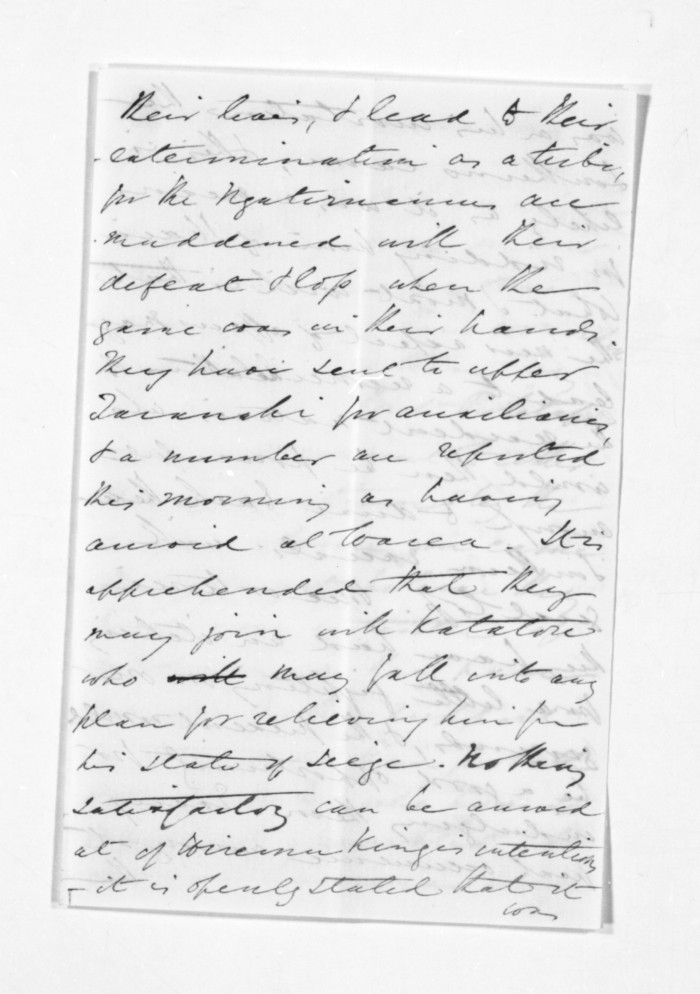 their lives, & lead to their
extermination as a tribe,
for the Ngatiruanuis are
maddened with their
defeat & loss when the
game was in their hands.
They have sent to upper
Taranaki for auxiliaries,
& a number are reported
this morning as having
arrived at Warea. It is
apprehended that they
may join with Katatore
who will may fall into any
plan for relieving him fm
his state of siege. Nothing
satisfactory can be arrived
at of Wiremu Kingis intentions
- it is openly stated that it
was